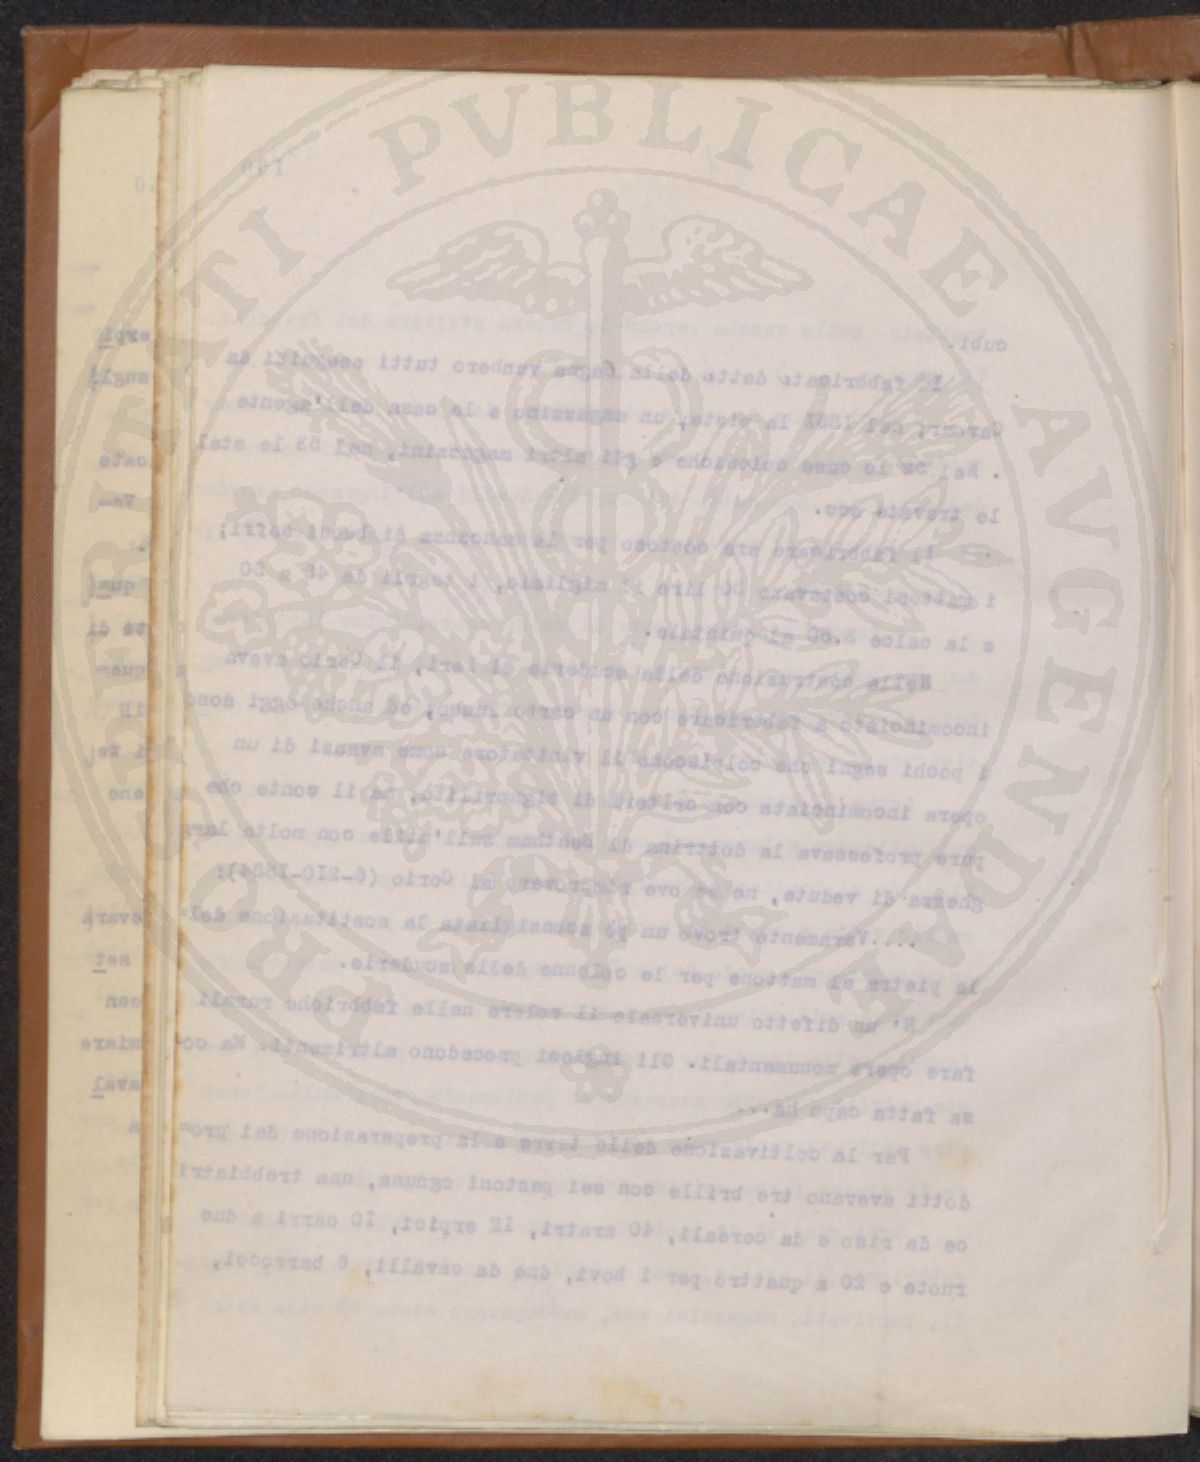 PROSPERITATI PVBLICAE AVGENDAE
100
cubi.
Il fabbricato detto della Cagna vanbero tutti eseguiti da
Cavour; nel 1851 la pista, un magazzino e la casa dell'agente
. Nel 52 le case coloniche e gli altri magazzini, nel 53 le stal
le travate ecc.
Il fabbricare era costoso per la mancanza di buoni
i mattoni costavano 30 lire il migliaio, i tegoli da 45 a 50
e la calce 3.50 al quintale.
Nella costruzione della scuderia di Leri, il Corio aveva
incominciato a fabbricare con un certo lusso, ed anche oggi sono
i pochi segni che colpiscono il visitatore come avanzi di un
opera incominciata con criterii di signorilità, ma il conte che
pure professava la dottrina di Bentham sull'utile con molta lar=
ghezza di vedute, ne mo ove rimprovero al Corio (6-210-1854):
....Veramente trovo un pò sconsigliata la sostituzione del=
la pietra al mattone per le colonne delle scuderie.
E' un difetto universale il volere nelle fabbriche rurali
fare opere monumentali. Gli inglesi procedono altrimenti. Ma co=
sa fatta capo ha...
Per la coltivazione delle terre e la preparazione dei pro=
dotti avevano tre brille con sei pestoni ognuna, una trebbiatri
ce da riso e da cereali, 40 aratri, 12 erpici, 10 carri a due
ruote e 20 a quattro per i bovi, due da cavalli, 6 barrocci,
erpi
sugli
oste
ve=
qua
te di
que=
il
i se
eno
ovara
set
con
miare
aval
a